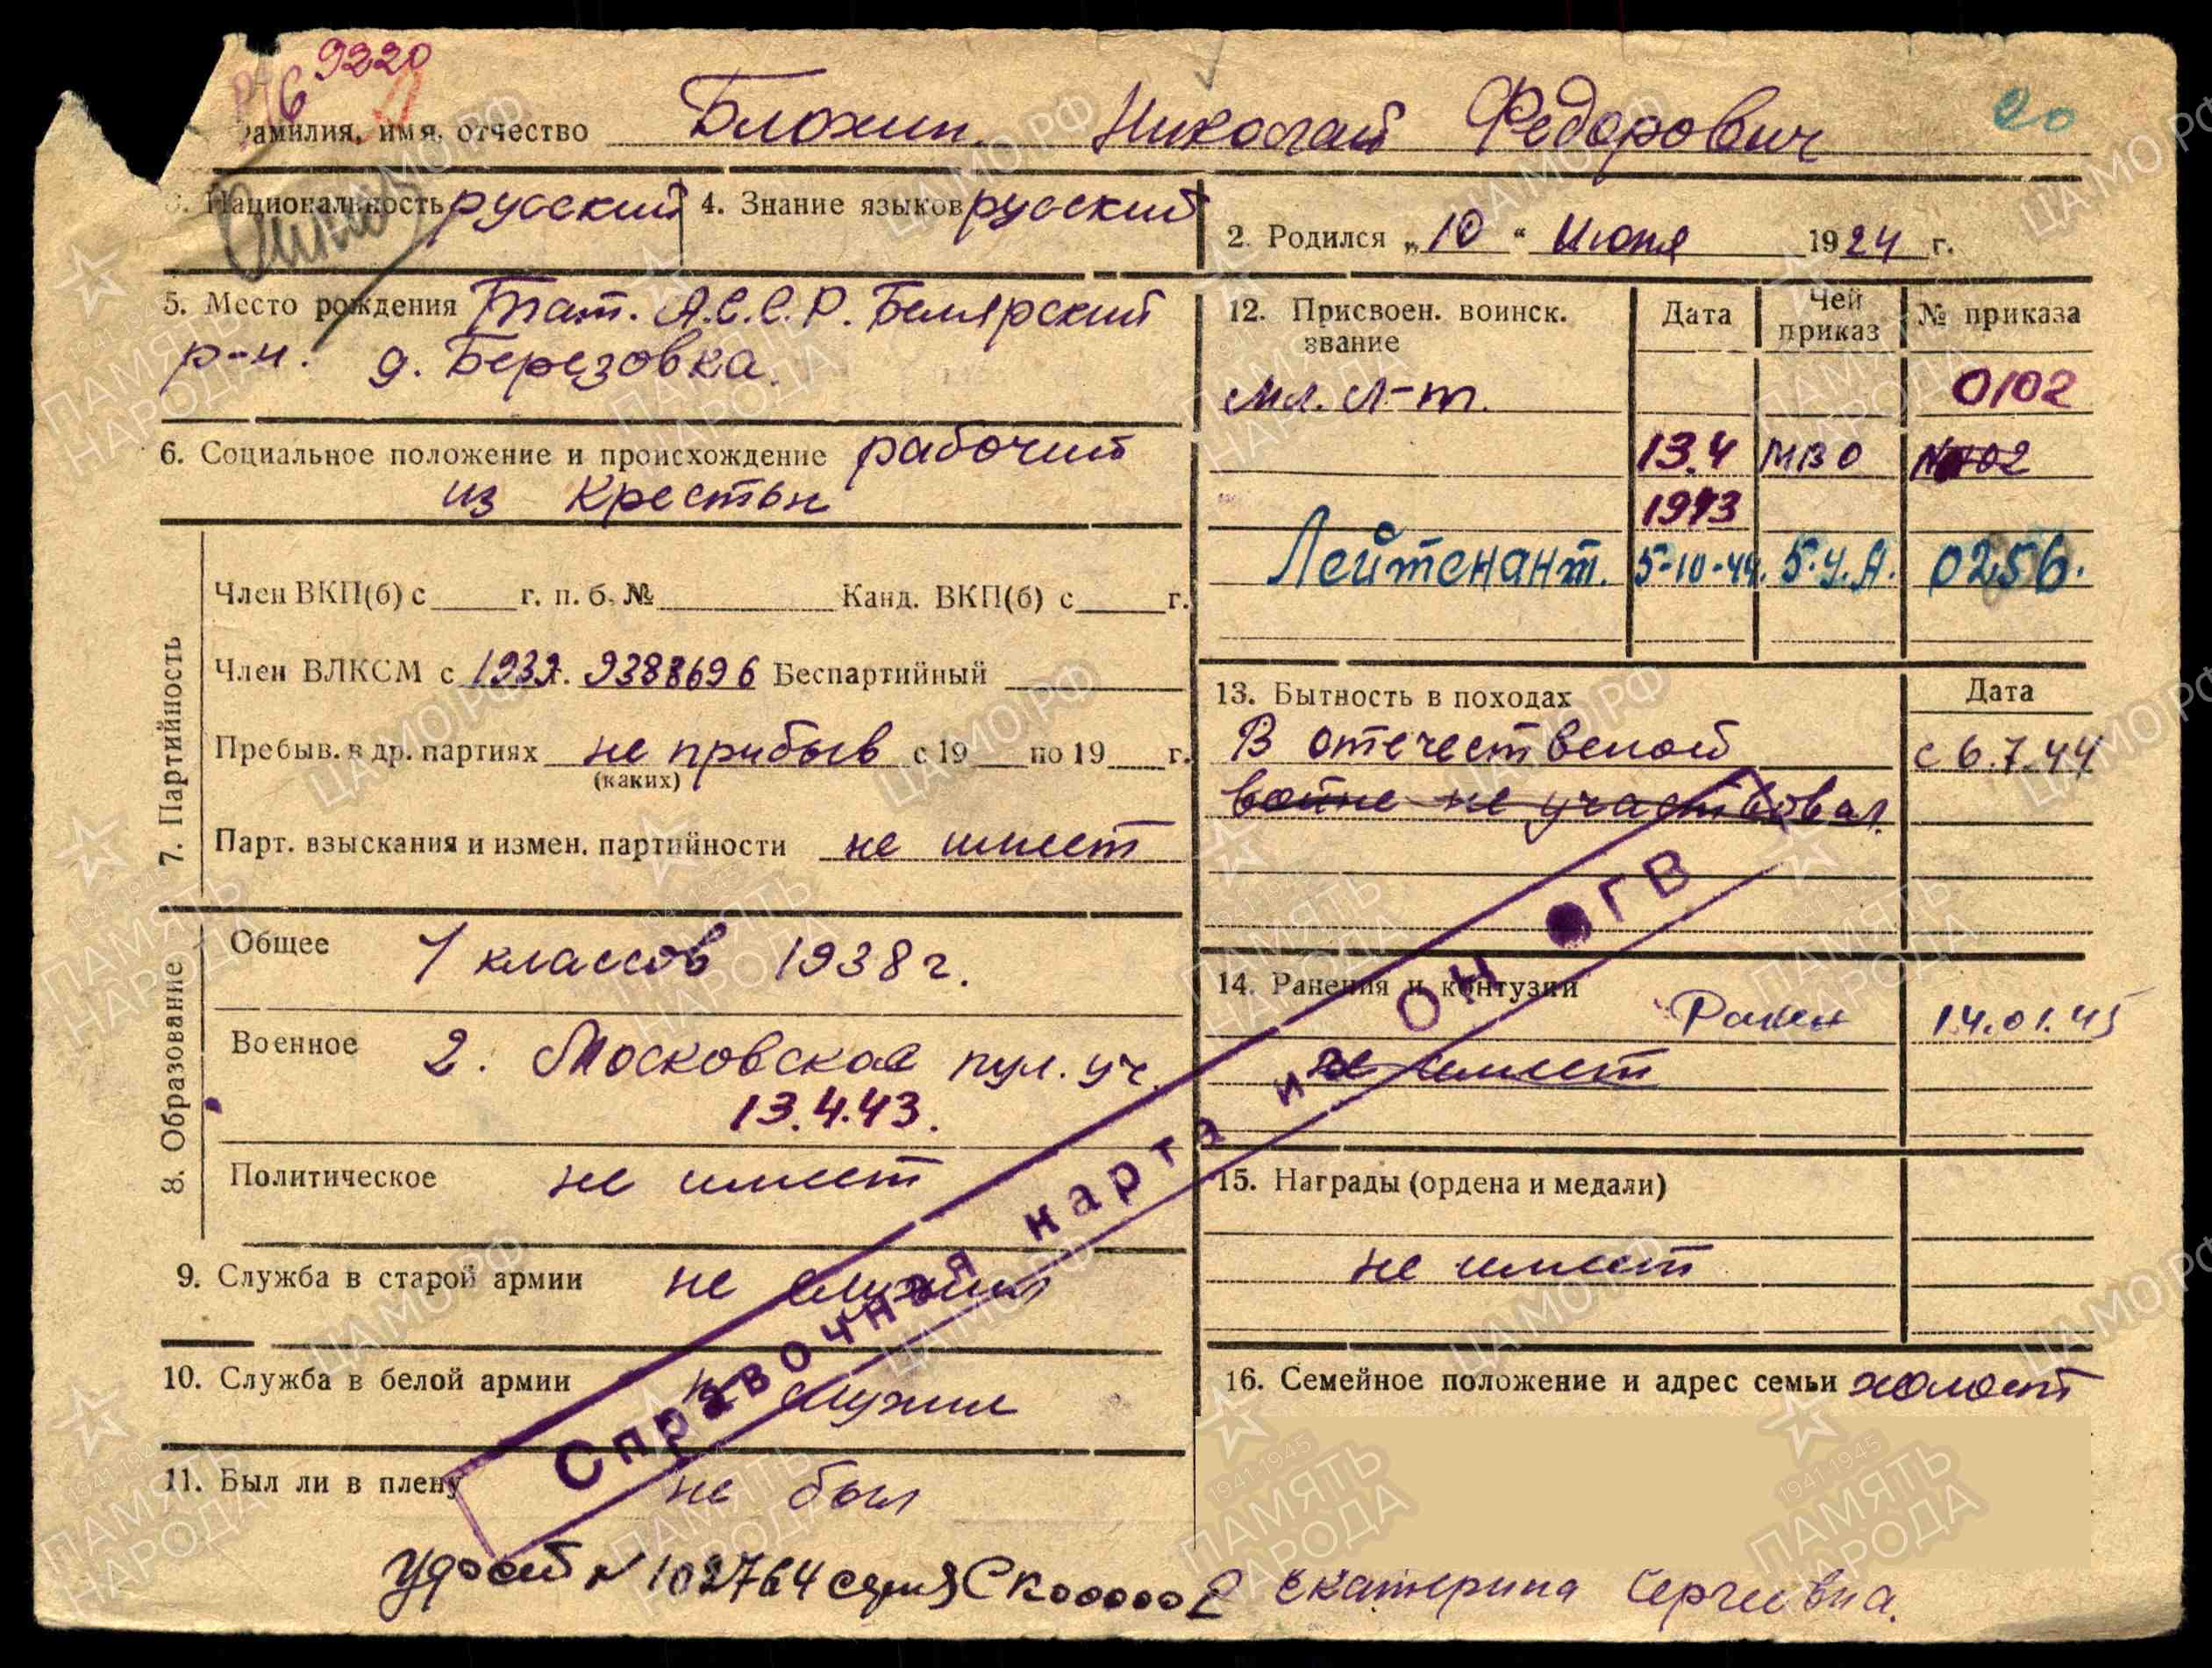 9220
Фамилия, имя, отчество Блохин Николай Федорович
20
3. Национальность русский 4. Знание языков русский
2. Родился „10“ Июня 1924 г.
5. Место рождения Тат. А.С.С.Р. Белярский
р-н. д. Березовка.
6. Социальное положение и происхождение рабочий
из крестьн
7. Партийность
Член ВКП(б) с г. п. б. № Канд. ВКП(б) с г.
Член ВЛКСМ с 1939г. 9388696 Беспартийный
Пребыв. в др. партиях не прибыв с 19 по 19 г.
(каких)
Парт. взыскания и измен. партийности не имеет
8. Образование
Общее 7 классов 1938 г.
Военное 2. Московское пул. уч.
13.4.43.
Политическое не имеет
9. Служба в старой армии не служил
10. Служба в белой армии не служил
11. Был ли в плену не был
12. Присвоен. воинск. звание Дата Чей приказ № приказа
мл. л-т. 0102
13.4 МВО
1943
Лейтенант. 5-10-44. 5.У.А. 0256.
13. Бытность в походах Дата
В отечественой с 6.7.44
войне не участвовал.
14. Ранения и контузии
Ранен 14.01.45
не имеет
15. Награды (ордена и медали)
не имеет
16. Семейное положение и адрес семьи холост
Екатерина Сергеевна.
Удост N 102764 серия СК00000
Справочная карта из ОК ОГВ
ПАМЯТЬ НАРОДА
1941-1945
ЦАМО.РФ